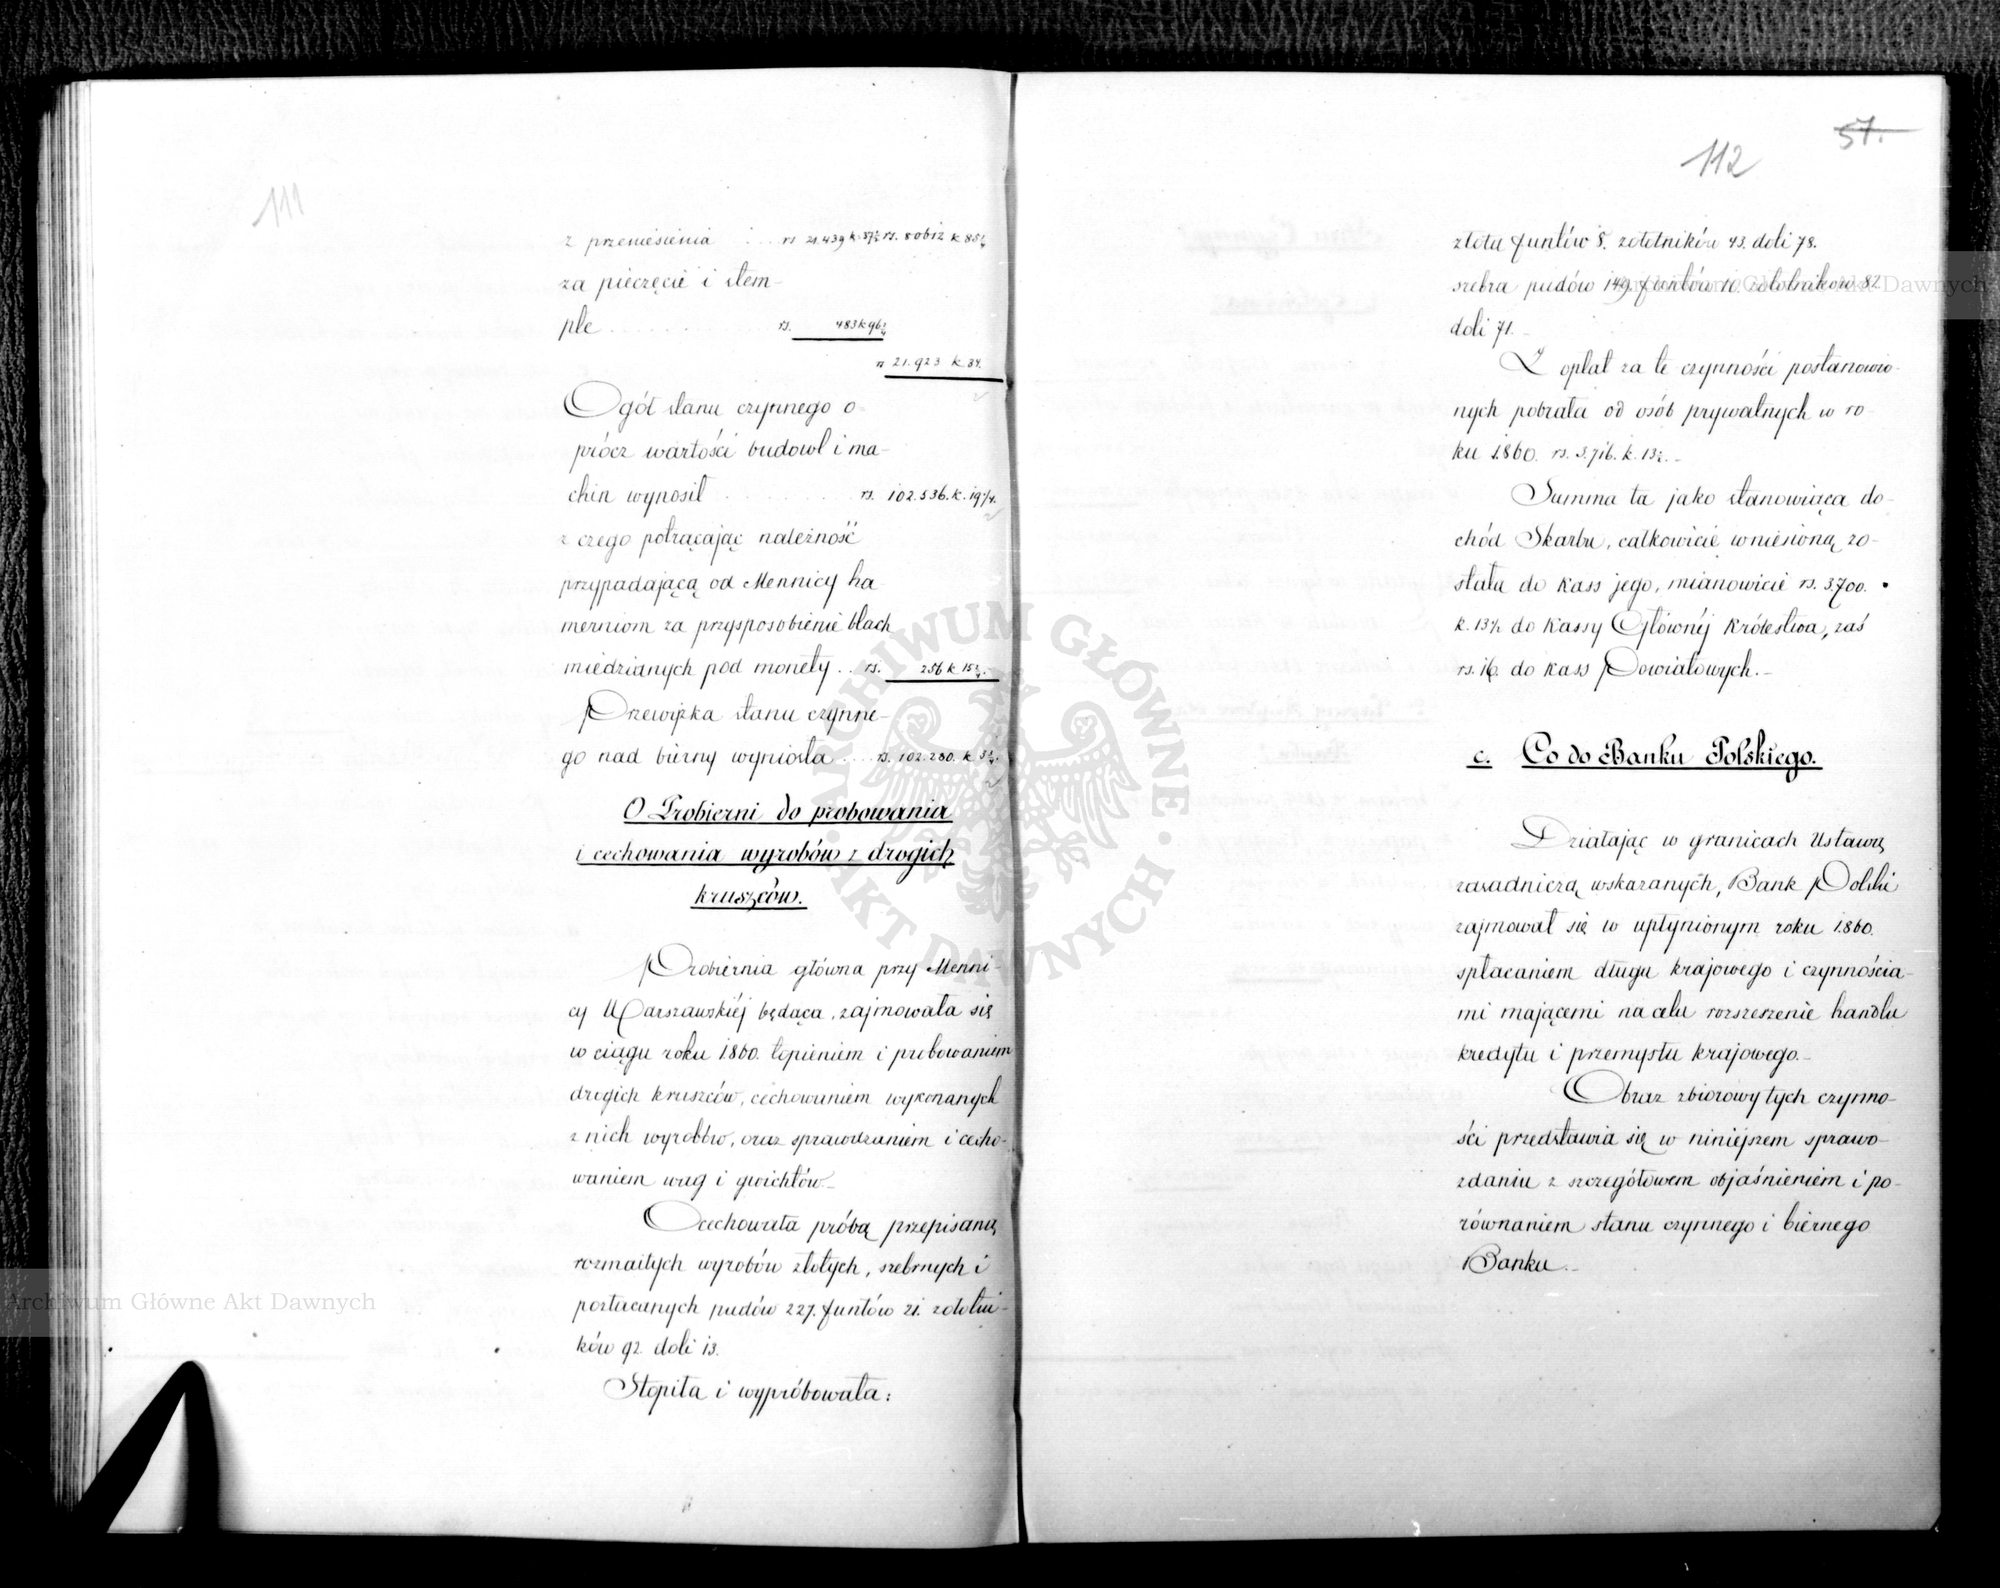 111
z przeniesienia . . . . rs 21.439 k. 37½ rs. 80612 k 85¼
za pieczęcie i stem-
ple . . . . . . . . . . rs. 483 k 96¾
rs 21.923 k 34.
Ogół stanu czynnego o-
prócz wartości budowl i ma-
chin wynosił . . . . . . . . rs. 102.536. k. 19¼.
z czego potrącając należność
przypadającą od Mennicy ha-
merniom za przysposobienie blach
miedzianych pod monety . . rs. 256 k 15¾.
Przewyżka stanu czynne-
go nad bierny wyniosła . . . . rs. 102.280. k 3¾.
O Probierni do probowania
i cechowania wyrobów z drogich
kruszców.
Probiernia główna przy Menni-
cy Warszawskiéj będąca, zajmowała się
w ciągu roku 1860. topieniem i probowaniem
drogich kruszców, cechowaniem wykonanych
z nich wyrobów, oraz sprawdzaniem i cecho-
waniem wag i gwichtów.-
Ocechowała próbą przepisaną
rozmaitych wyrobów złotych, srebrnych i
pozłacanych pudów 227. funtów 21. zołotni-
ków 92. doli 13.
Stopiła i wypróbowała:
57.
112
złota funtów 8. zołotników 43. doli 78.
srebra pudów 149. funtów 10. zołotników 82
doli 71.-
Z opłat za te czynności postanowio-
nych pobrała od osób prywatnych w ro-
ku 1860. rs. 3.716. k. 13½.-
Summa ta jako stanowiąca do-
chód Skarbu, całkowicie wniesioną zo-
stała do kass jego, mianowicie rs. 3.700.
k. 13½ do Kassy Głównéj Królestwa, zaś
rs. 16. do kass Powiatowych.-
c. Co do Banku Polskiego.
Działając w granicach Ustawą
zasadniczą wskazanych, Bank Polski
zajmował się w upłynionym roku 1860.
spłacaniem długu krajowego i czynnościa-
mi mającemi na celu rozszerzenie handlu
kredytu i przemysłu krajowego.-
Obraz zbiorowy tych czynno-
ści przedstawia się w niniejszem sprawo-
zdaniu z szczegółowem objaśnieniem i po-
równaniem stanu czynnego i biernego
Banku.-
ARCHIWUM GŁÓWNE AKT DAWNYCH
Archiwum Główne Akt Dawnych
Archiwum Główne Akt Dawnych